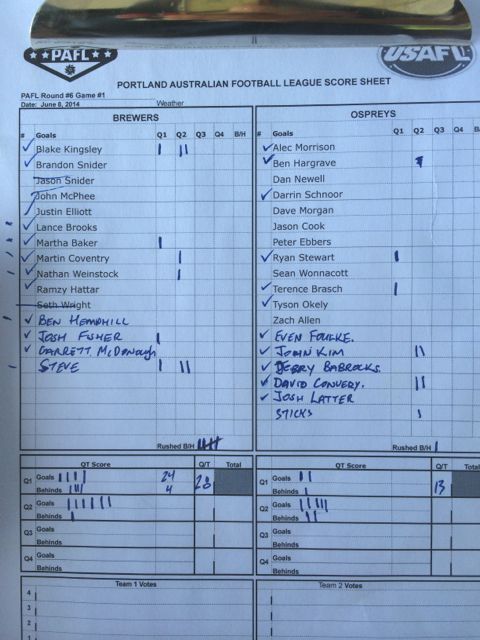 PAFL
USAFL
PORTLAND AUSTRALIAN FOOTBALL LEAGUE SCORE SHEET
PAFL Round #6 Game #1
Date: June 8, 2014 Weather
BREWERS
# Goals Q1 Q2 Q3 Q4 B/H
Blake Kingsley
Brandon Snider
Jason Snider
John McPhee
Justin Elliott
Lance Brooks
Martha Baker
Martin Coventry
Nathan Weinstock
Ramzy Hattar
Seth Wright
BEN HEMPHILL
JOSH FISHER
GARRETT McDONOUGH
STEVE
Rushed B/H
OSPREYS
# Goals Q1 Q2 Q3 Q4 B/
Alec Morrison
Ben Hargrave
Dan Newell
Darrin Schnoor
Dave Morgan
Jason Cook
Peter Ebbers
Ryan Stewart
Sean Wonnacott
Terence Brasch
Tyson Okely
Zach Allen
EVEN FOULKE.
JOHN KIM
JERRY BABROCKS
DAVID CONVERY.
JOSH LATTER
STICKS
Rushed B/H
QT Score Q/T Total
Q1 Goals 24
Behinds 4 28
Q2 Goals
Behinds
Q3 Goals
Behinds
Q4 Goals
Behinds
QT Score Q/T Total
Q1 Goals
Behinds 13
Q2 Goals
Behinds
Q3 Goals
Behinds
Q4 Goals
Behinds
Team 1 Votes
4
3
2
1
Team 2 Votes